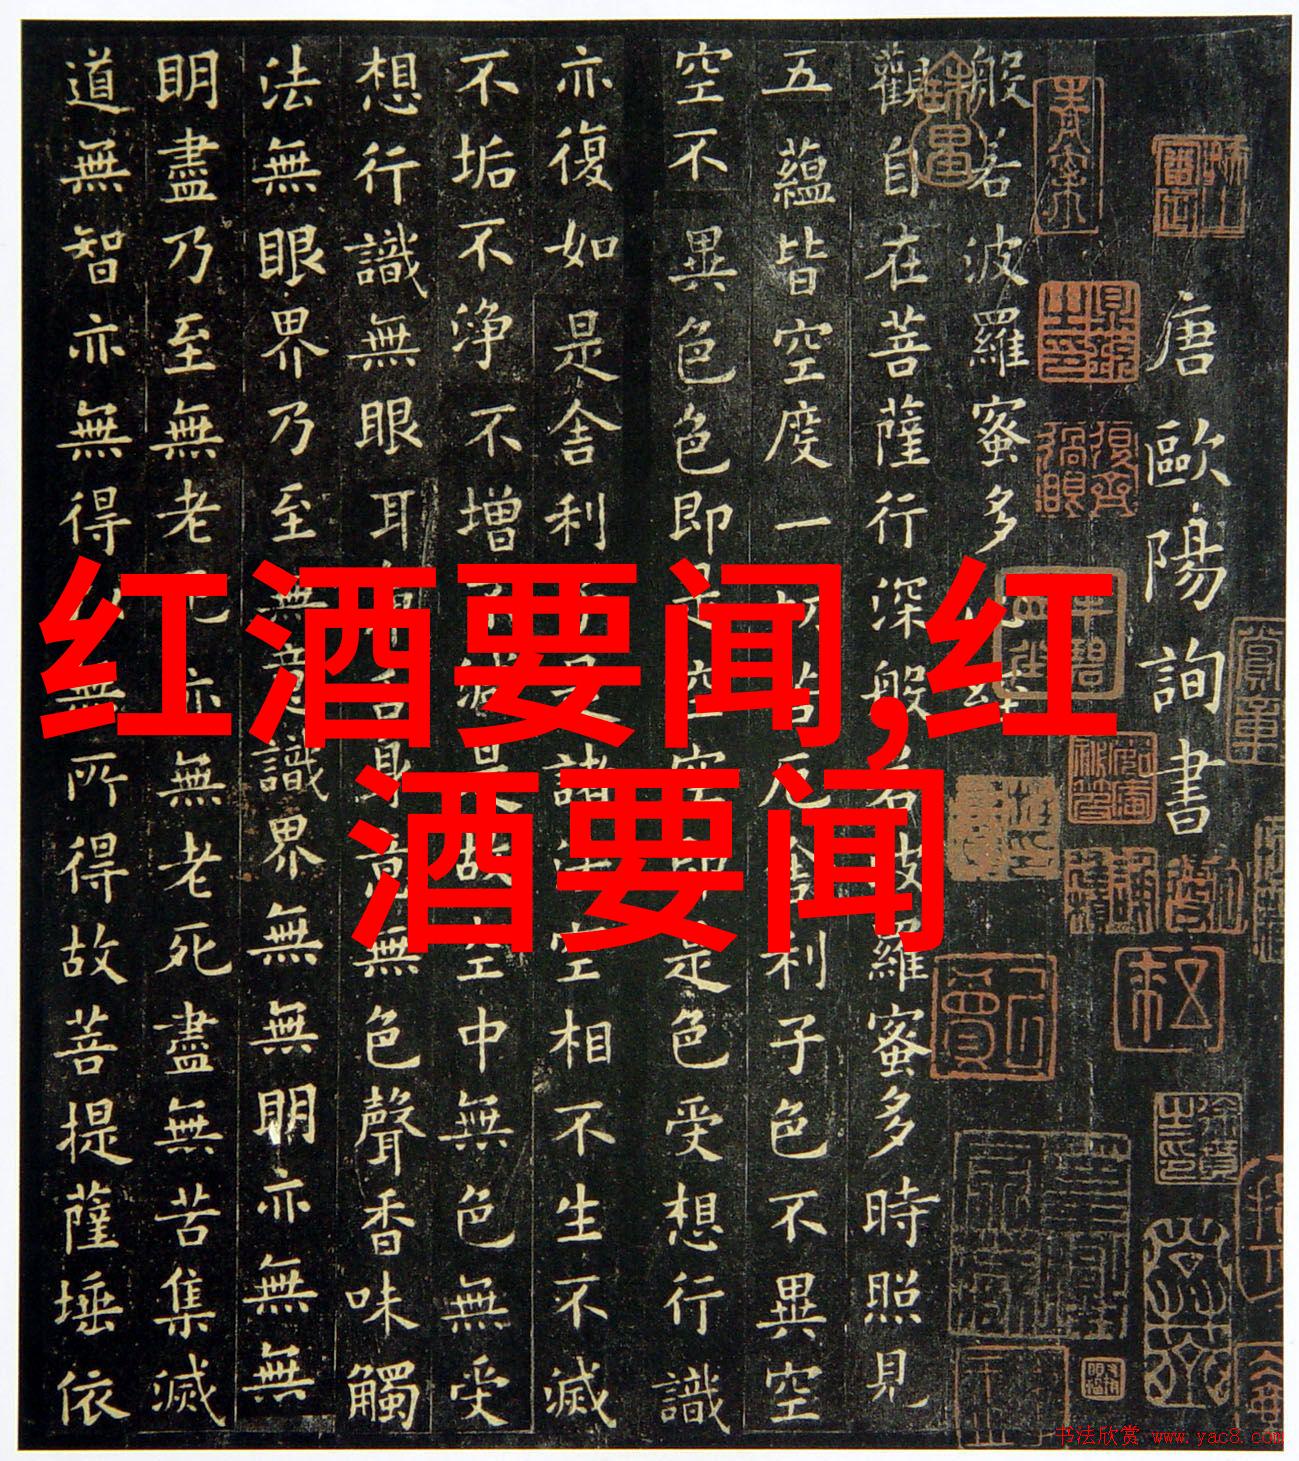 唐歐陽詢書
般若波羅蜜多心經
觀自在菩薩行深般若波羅蜜多時照見
五蘊皆空度一切苦厄舍利子色不異空
空不異色色即是空空即是色受想行識
亦復如是舍利子是諸法空相不生不滅
不垢不浄不增不減是故空中無色無受
想行識無眼耳鼻舌身意無色聲香味觸
法無眼界乃至無意識界無無明亦無無
明盡乃至無老死亦無老死盡無苦集滅
道無智亦無得以無所得故菩提薩埵依
红酒要闻,红
酒要闻
书法欣赏 www.yac8.com